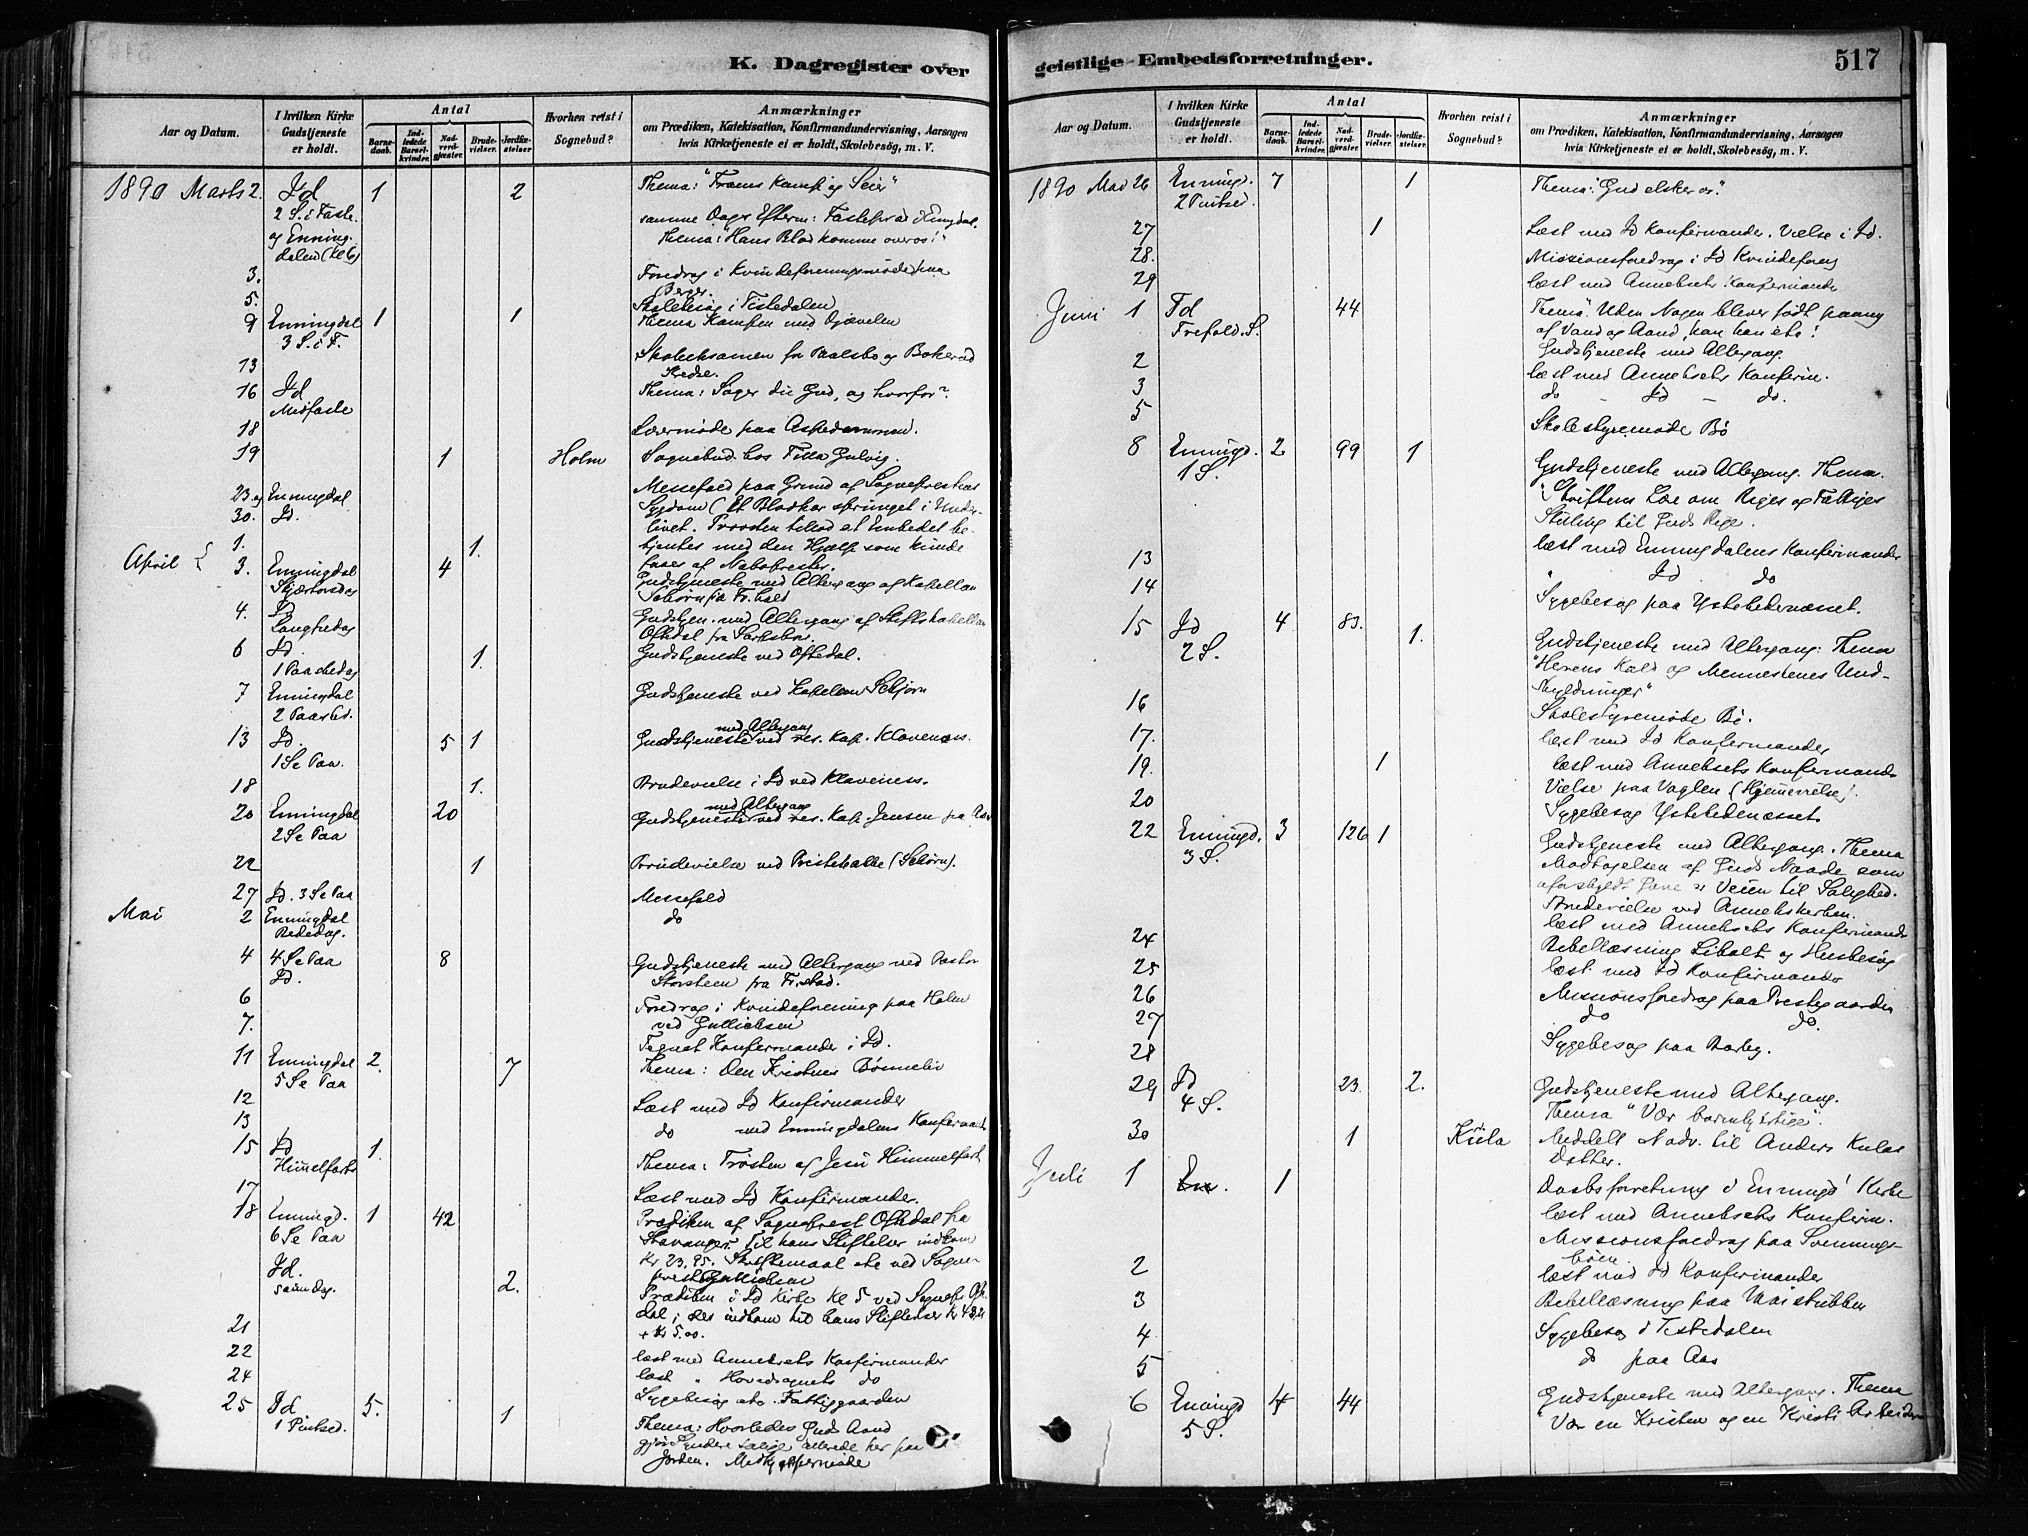 K. Dagregister over
Aar og Datum.
I hvilken Kirke Gudstjeneste er holdt.
Antal
Barnedaab.
Indledede Barselkvinder.
Nadverdgjæster.
Brudevielser.
Jordfæstelser
Hvorhen reist i Sognebud?
Anmærkninger
om Prædiken, Katekisation, Konfirmandundervisning, Aarsagen
hvis Kirketjeneste ei er holdt, Skolebesög, m. V.
1890 Marts 2. Id 1 2 Thema: "Troens Kamp og Seier"
2 S. i Faste samme Dags Efterm: Fastepræd i Enngdal.
og Enning- Thema: "Hans Blod komme over os!"
dalen (Kl 6)
3. Foredrag i Kvindeforeningsmöde paa
Berger.
5. Skolebesög i Tistedalen
9 Enningdal 1 1 Thema Kampen med Djævelen
3 S. i F.
13 Skoleexamen for Paalsbo og Bokerød
Kredse.
16 Id Thema: Söger du Gud, og hvorfor?
Midfaste
18 Lærermöde paa Aspedammen.
19 1 Holm Sognebud hos Tilla Gulvig.
23 og Enningdal Messefald paa Grund af Sognepresten
30. Id. Sygdom (Et Blodkar sprunget i Under-
livet. Provsten tillod at Embedet be-
April 1. 1. tjentes med den Hjælp som kunde
3. Enningdal 4 faaes af Nabopræster.
Skjærtorsdag Gudstjeneste med Altergang af Kapellan
Schiörn fra Fr.hald
4. Id Gudstjen. med Altergang af Stiftskapellan
Langfredag Oftedal fra Sarpsborg.
6 Id 1. Gudstjeneste ved Oftedal.
1 Paaskedag
7 Enningdal Gudstjeneste ved Kapellan Schjörn
2 Paaskd.
med Altergang
13 Id. 5 1 Gudstjeneste ved res. Kap. Klavenæss.
1 Se Paa.
18 1. Brudevielse i Id ved Klaveness.
med Altergang
20 Enningdal 20 Gudstjeneste ved res. Kap. Jensen fra
2 Se Paa
22 1 Brudevielse ved Prestebakke (Schörn).
27 Id. 3 Se Paa Messefald
Mai 2 Enningdal do
Bededag.
4 4 Se Paa 8 Gudstjeneste med Altergang ved Pastor
Id. Storsteen fra Fr.stad.
6 Foredrag i Kvindeforening paa Holm
7. ved Gullichsen
Tegnet Konfirmander i Id.
11 Enningdal 2. 7 Thema: Den Kristnes Bönneliv
5 Se Paa
12 Læst med Id Konfirmander
13 do med Enningdalens Konfirmand
15 Id 1. Thema: Trösten af Jesu Himmelfart
Himelfarts
17 Læst med Id Konfirmander.
18 Enningd. 1 42 Prædiken af Sogneprest Oftedal fra
6 Se Paa Stavanger. Til hans Stiftelser indkom
Kr 23,95. Skriftemaal etc ved Sogne-
Id. 2. prest Gullichsen
samdag. Prædiken i Id Kirke Kl 5 ved Sognepr Ofte
dal; der indkom til hans Stiftelser Kr
21 + Kr 5.00.
22 læst med Annexets Konfirmander
24 læst " Hovedsognets do
25 Id 5. 1 Sygebesög etc. Fattiggaarden
1 Pintsed. Thema: Hvorledes Guds Aand
gjör Syndere salige allerede her paa
Jorden.
geistlige Embedsforretninger. 517
Aar og Datum.
I hvilken Kirke Gudstjeneste er holdt.
Antal
Barnedaab.
Indledede Barselkvinder.
Nadverdgjæster.
Brudevielser.
Jordfæstelser.
Hvorhen reist i Sognebud?
Anmærkninger
om Prædiken, Katekisation, Konfirmandundervisning, Aarsagen
hvis Kirketjeneste ei er holdt, Skolebesög, m. V.
1890 Mai 26 Enningd. 7 1 Thema: "Gud elsker os."
2 Pintsed.
27 1 Læst med Id Konfirmander. Vielse i Id.
28. Missionsforedrag i Id Kvindeforeng
29 læst med Annexets Konfirmander
Juni 1 Id 44 Thema "Uden Nogen bliver födt paany
Trefold. S. af Vand og Aand, kan han etc!
Gudstjeneste med Altergang.
2 læst med Annexets Konfirm.
3 do - Id - do.
5 Skolestyremöde Bö
8 Enningd. 2 99 1 Gudstjeneste med Altergang. Thema.
1 S. "Skriftens Lære om Riges og Fattiges
Stilling til Guds Rige.
13 læst med Enningdalens Konfirmander
14 " Id do
Sygebesög paa Ystehedenæsset.
15 Id 4 83. 1. Gudstjeneste med Altergang: Thema
2 S. "Herrens Kald og Menneskenes Und-
skyldninger"
16 Skolestyremöde Bö.
17. læst med Id Konfirmander
19. 1 læst med Annexets Konfirmand.
Vielse paa Vaglen (Hjemmevielse).
20 Sygebesög Ystehedenæsset
22 Enningd. 3 126 1 Gudstjeneste med Altergang. Thema
3 S. Modtagelsen af Guds Naade som
uforskyldt Gave er Veien til Salighed.
Brudevielse ved Annexkirken.
24 læst med Annexets Konfirmand
Bibellæsning Libalt og Husbesög
25 læst med Id Konfirmander
26 Missionsforedrag paa Prestegaarden
27 do do.
28 Sygebesög paa Barby.
29 Id 23. 2. Gudstjeneste med Altergang.
4 S. Thema "Vær barmhjertige".
30 1 Kula Meddelt Nadv. til Anders Kulas
Datter.
Juli 1 En. 1 Daabsforretning i Enningd' Kirke
læst med Annexets Konfirm.
Missionsforedrag paa Svennings-
böen.
2 læst med Id Konfirmander
3 Bibellæsning paa
4 Sygebesög i Tistedalen
5 do paa Aas
6 Enningd 4 44 Gudstjeneste med Altergang. Thema
5 S. "Vær en Kristen og en Kristi Arbeider